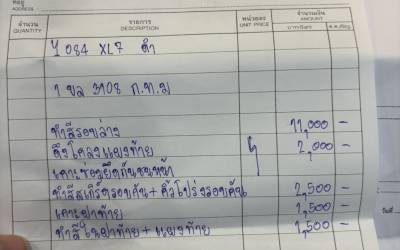 ที่อยู่
ADDRESS
จำนวน
QUANTITY
รายการ
DESCRIPTION
หน่วยละ
UNIT PRICE
จำนวนเงิน
AMOUNT
084 XL7 ดำ
1 ขล 3108 ก.ท.ม
ทำสีรอบล่าง 11,000 -
ดึงโครงแผงท้าย 2,000 -
เคาะช่วงยึดกันชนหน้า
ทำสีสเกิร์ตรอบคัน + คิ้วโป่งรอบคัน 2,500 -
เคาะฝาท้าย 1,500 -
ทำสีในฝาท้าย + แผงท้าย 1,500 -
วันที่